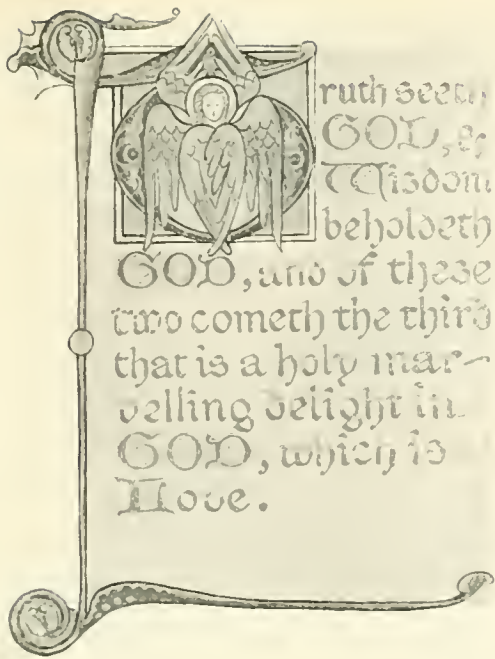 Truth seeth
GOD, &
Wisdom
beholdeth
GOD, and of these
two cometh the third
that is a holy mar-
velling delight in
GOD, which is
Love.